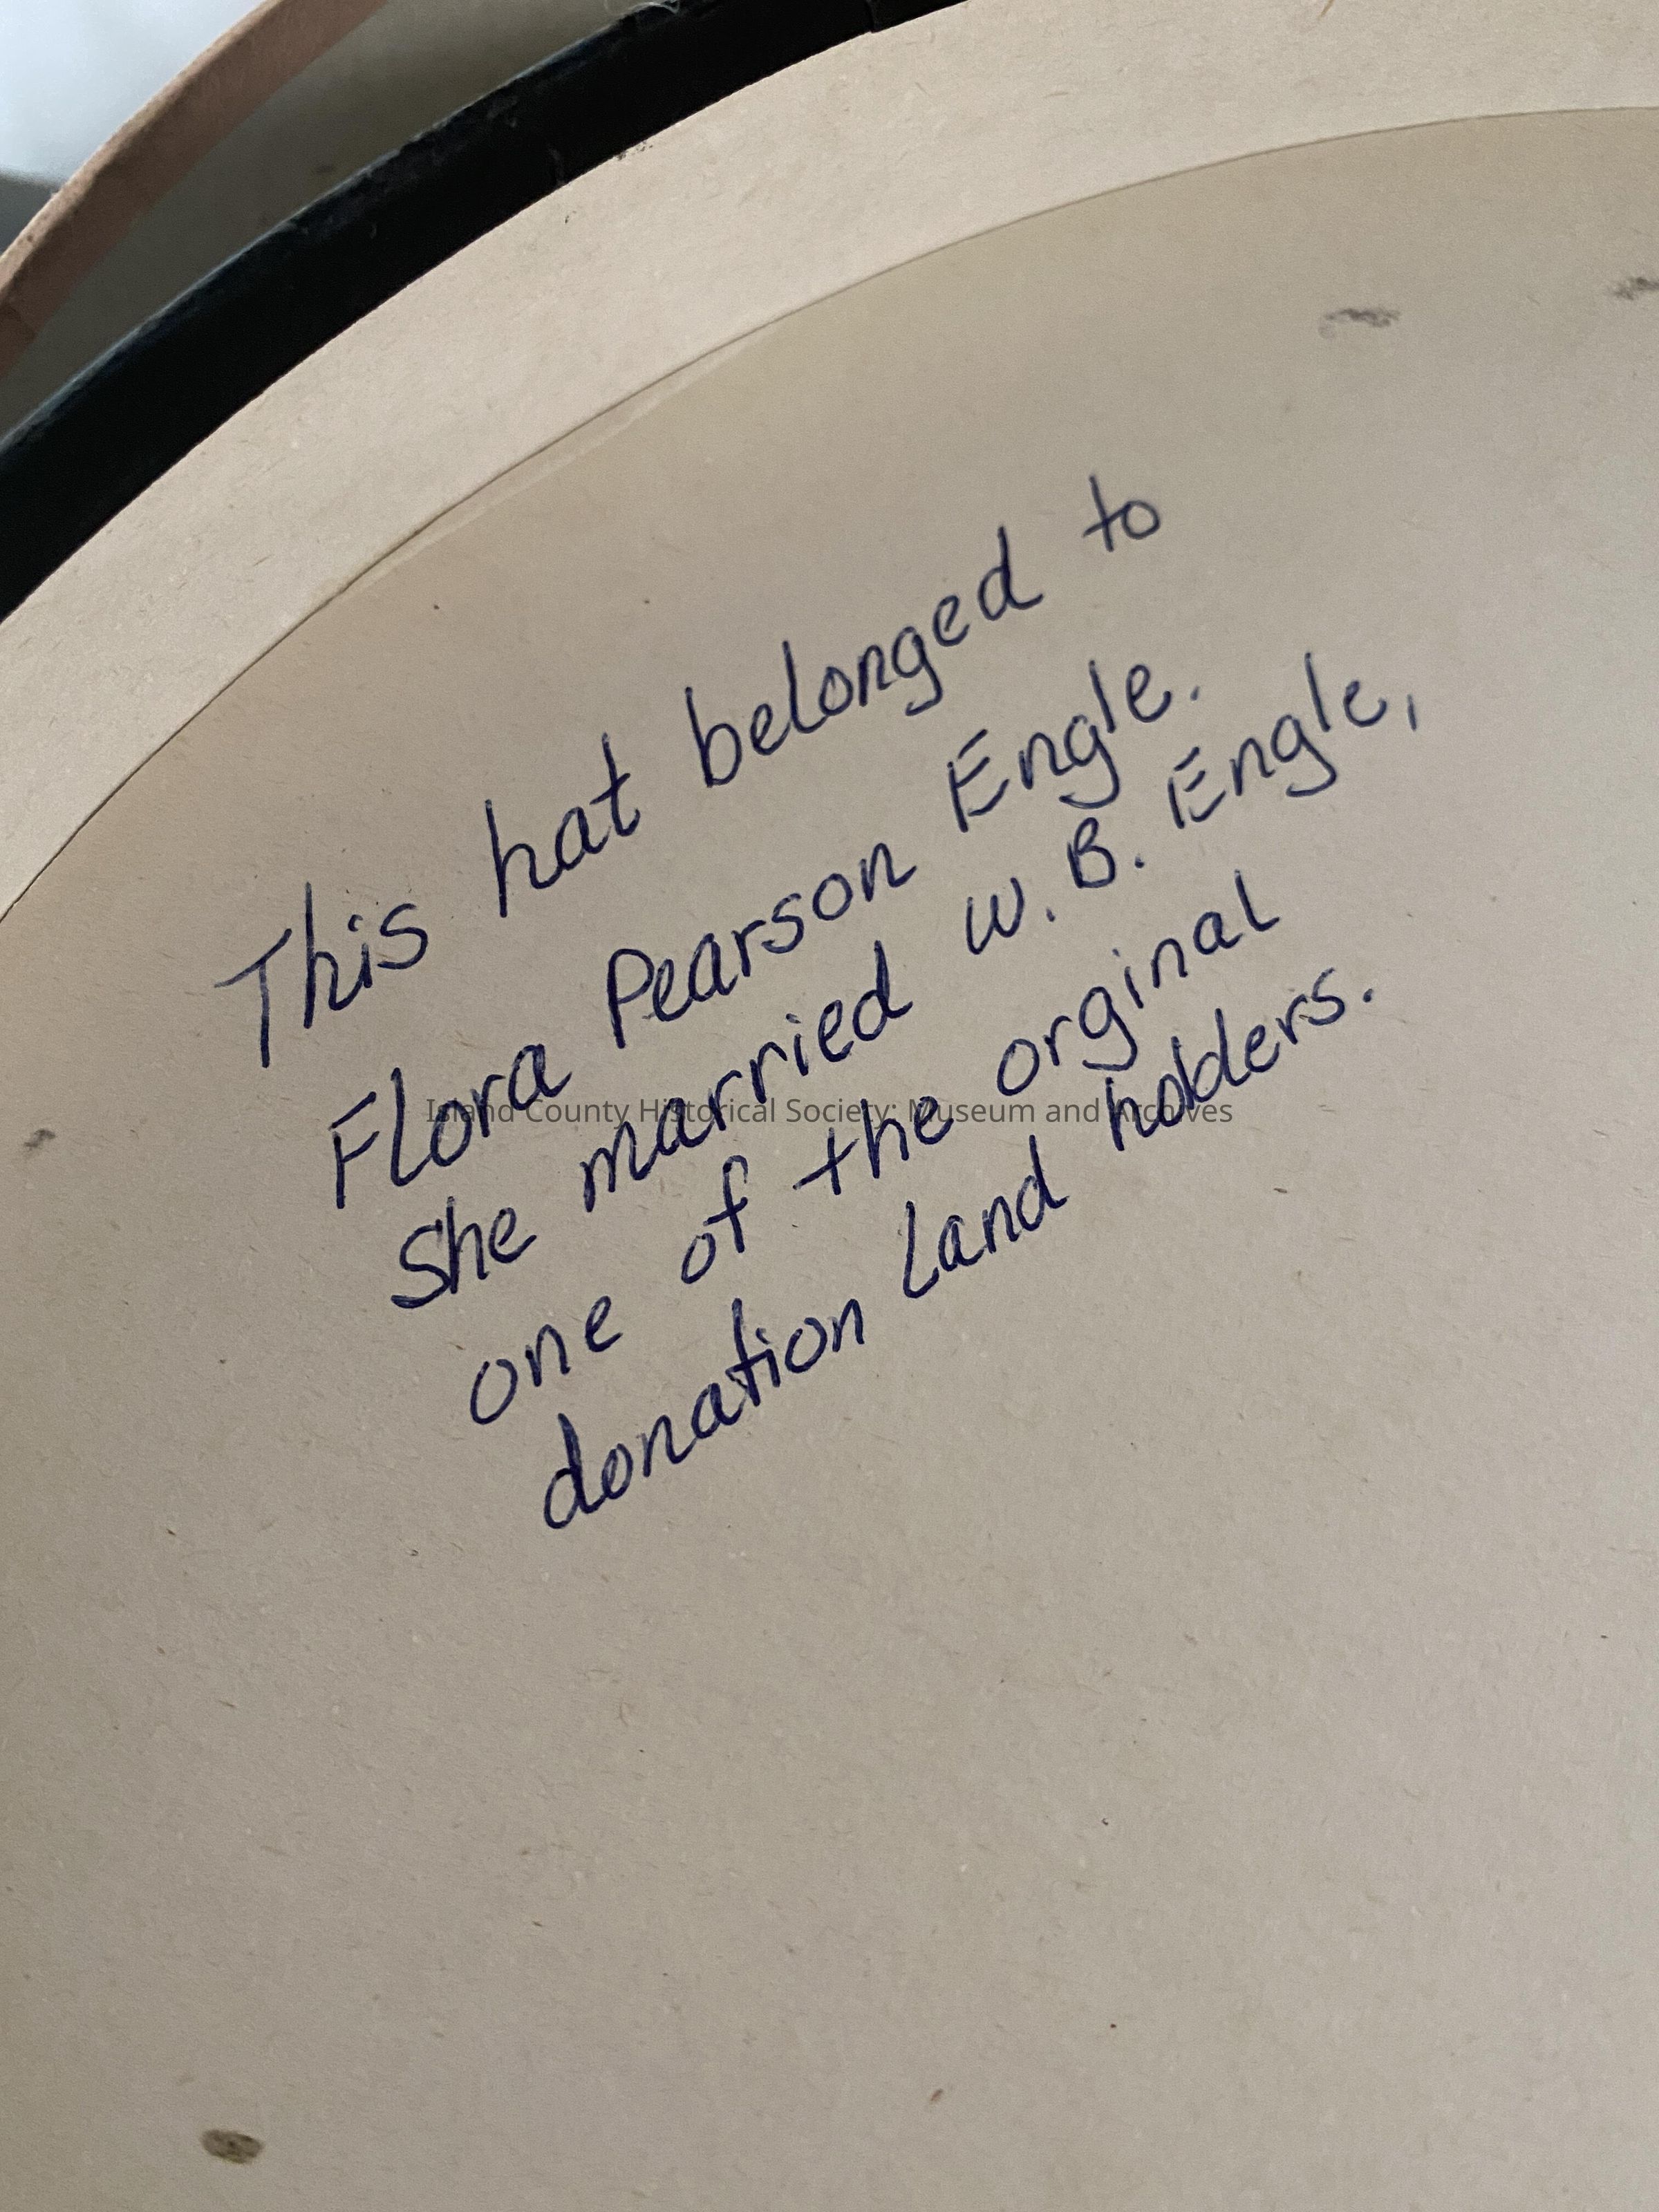 This hat belonged to
Flora Pearson Engle.
She married W. B. Engle,
one of the orginal
donation Land holders.
Island County Historical Society: Museum and Archives